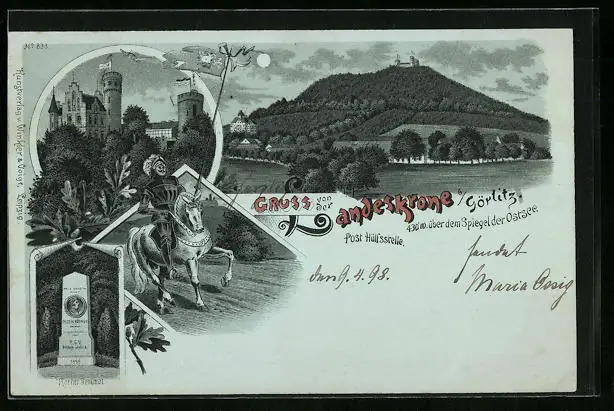 No 833
Kunstverlag v. Winkler & Voigt, Leipzig.
Gruss von der Landeskrone b/ Görlitz.
430 m. über dem Spiegel der Ostsee.
Post Hülfsstelle.
den 9.4.98.
sendet
Maria